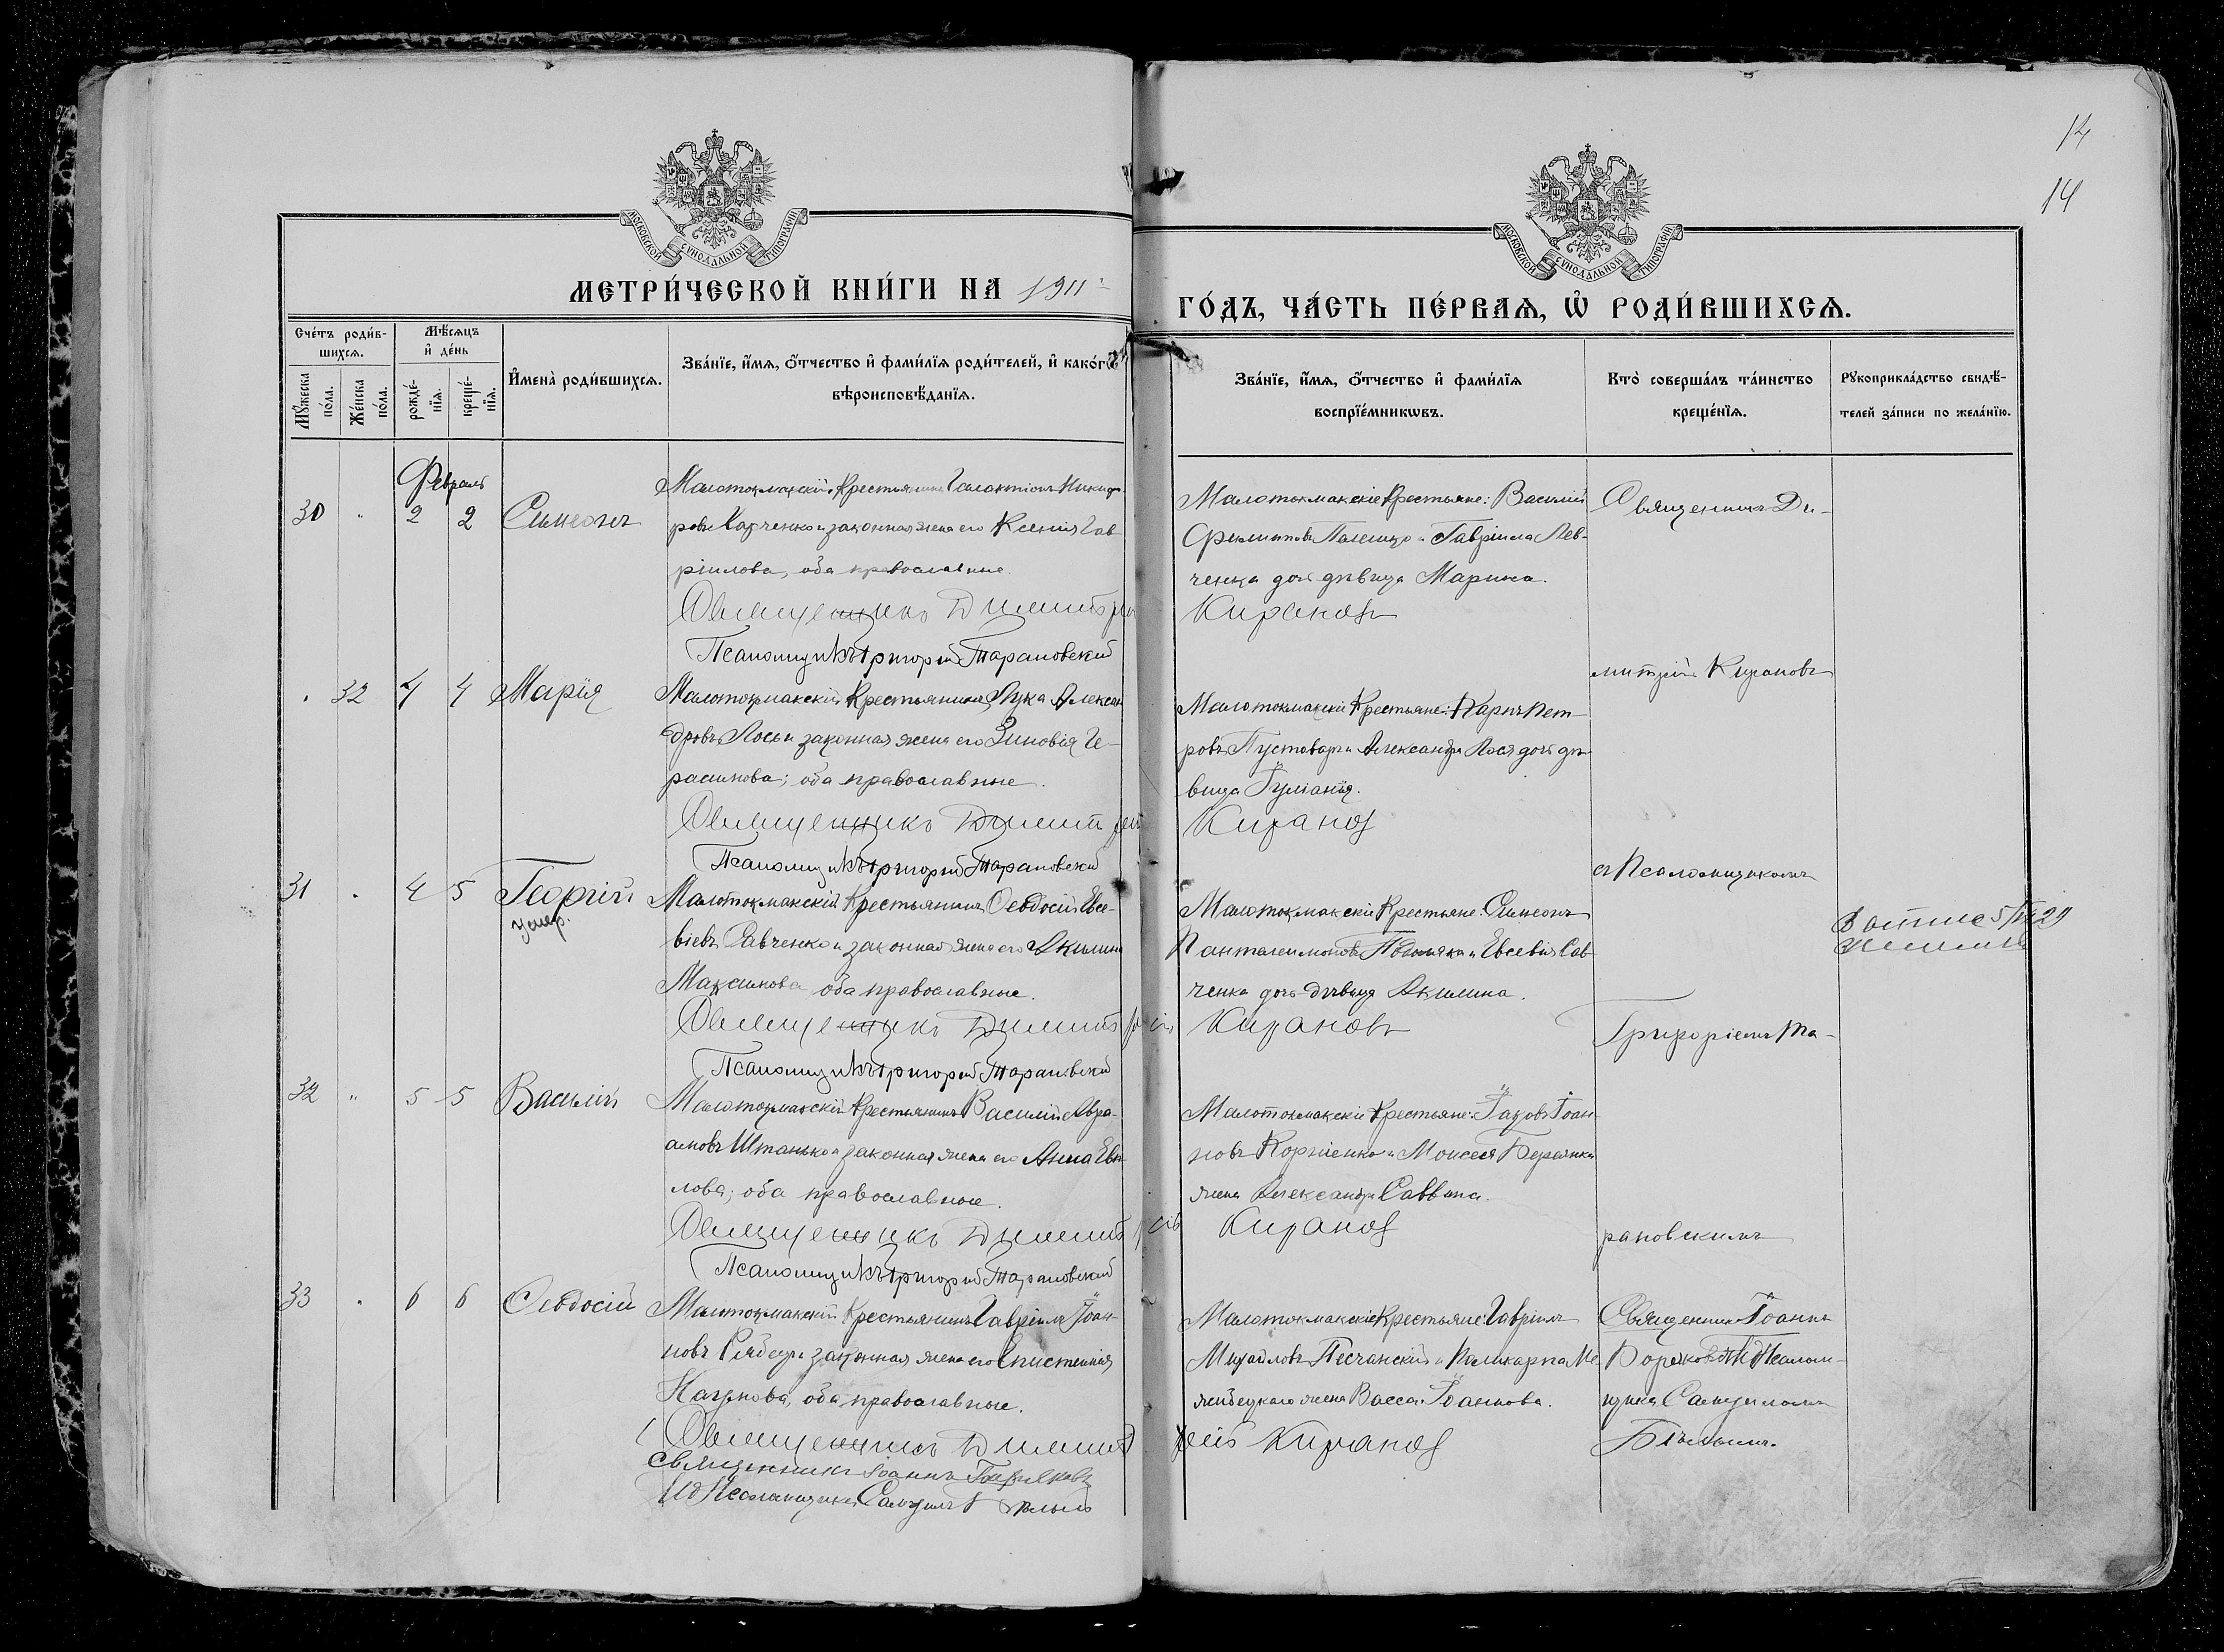 14
14
МОСКОВСКОЙ СѴНОДАЛЬНОЙ ТИПОГРАФІИ
МОСКОВСКОЙ СѴНОДАЛЬНОЙ ТИПОГРАФІИ
МЕТРИ́ЧЕСКОЙ КНИ́ГИ НА 1911
ГО́ДЪ, ЧА́СТЬ ПЕ́РВАѦ, Ѽ РОДИ́ВШИХСѦ.
Сче́тъ роди́в-
шихсѧ.
Мꙋ́жеска
по́ла.
Же́нска
по́ла.
Мѣ́сѧцъ
и҆ де́нь
рожде́-
нїѧ.
креще́-
нїѧ.
И҆мена̀ роди́вшихсѧ.
Зва́нїе, и҆́мѧ, ѻ҆́тчество и҆ фами́лїѧ роди́телей, и҆ како́гѡ
вѣроисповѣ́данїѧ.
Зва́нїе, и҆́мѧ, ѻ҆́тчество и҆ фами́лїѧ
воспрїе́мникѡвъ.
Кто̀ соверша́лъ та́инство
креще́нїѧ.
Рꙋкоприкла́дство свидѣ́-
телей за́писи по жела́нїю.
Февраль
30 " 2 2 Симеонъ
Малотокмакскій Крестьянинъ Галактіонъ Никифо-
ровъ Харченко и законная жена его Ксенія Гав-
ріилова, оба православные.
Священникъ Димитрій
Псаломщикъ Григорій Тарановскій
Малотокмакскіе Крестьяне: Василій
и Гавріила Лев-
ченка дочь дѣвица Марина.
Кирановъ
Священникъ Ди-
" 32 4 4 Марія
Малотокмакскій Крестьянинъ Лука Алексан-
дровъ Лось и законная жена его Зиновія Ге-
расимова; оба православные.
Священникъ Димитрій
Псаломщикъ Григорій Тарановскій
Малотокмакскіе Крестьяне: Карпъ Пет-
ровъ Пустоваръ и Александра Лося дочь дѣ-
вица Іуліанія.
Кирановъ
митрій Кирановъ
31 " 4 5 Георгій
умер.
Малотокмакскій Крестьянинъ Ѳеодосій Евсе-
віевъ Савченко и законная жена его Акилина
Максимова оба православные.
Священникъ Димитрій
Псаломщикъ Григорій Тарановскій
Малотокмакскіе Крестьяне: Симеонъ
Пантелеимоновъ и Евсевія Сав-
ченка дочь дѣвица Акилина.
Кирановъ
съ Псаломщикомъ
Григоріемъ Та-
32 " 5 5 Василій
Малотокмакскій Крестьянинъ Василій Авра-
амовъ Штанько и законная жена его Анна
лова; оба православные.
Священникъ Димитрій
Псаломщикъ Григорій Тарановскій
Малотокмакскіе Крестьяне: Іаковъ Іоан-
новъ Корніенко и Моисея
жена Александра Саввина.
Кирановъ
рановскимъ
33 " 6 6 Ѳеодосій
Малотокмакскій Крестьянинъ Гавріилъ Іоан-
новъ и законная жена его Епистимія
Наумова, оба православные.
Священникъ Димитрій
Священникъ Іоаннъ
ИД Псаломщика Самуилъ Бѣлый
Малотокмакскіе Крестьяне: Гавріилъ
Михайловъ Песчанскій и Поликарпа Ме-
жена Васса Іоаннова.
Кирановъ
Священникъ Іоаннъ
ИД Псалом-
щика Самуиломъ
Бѣлымъ.